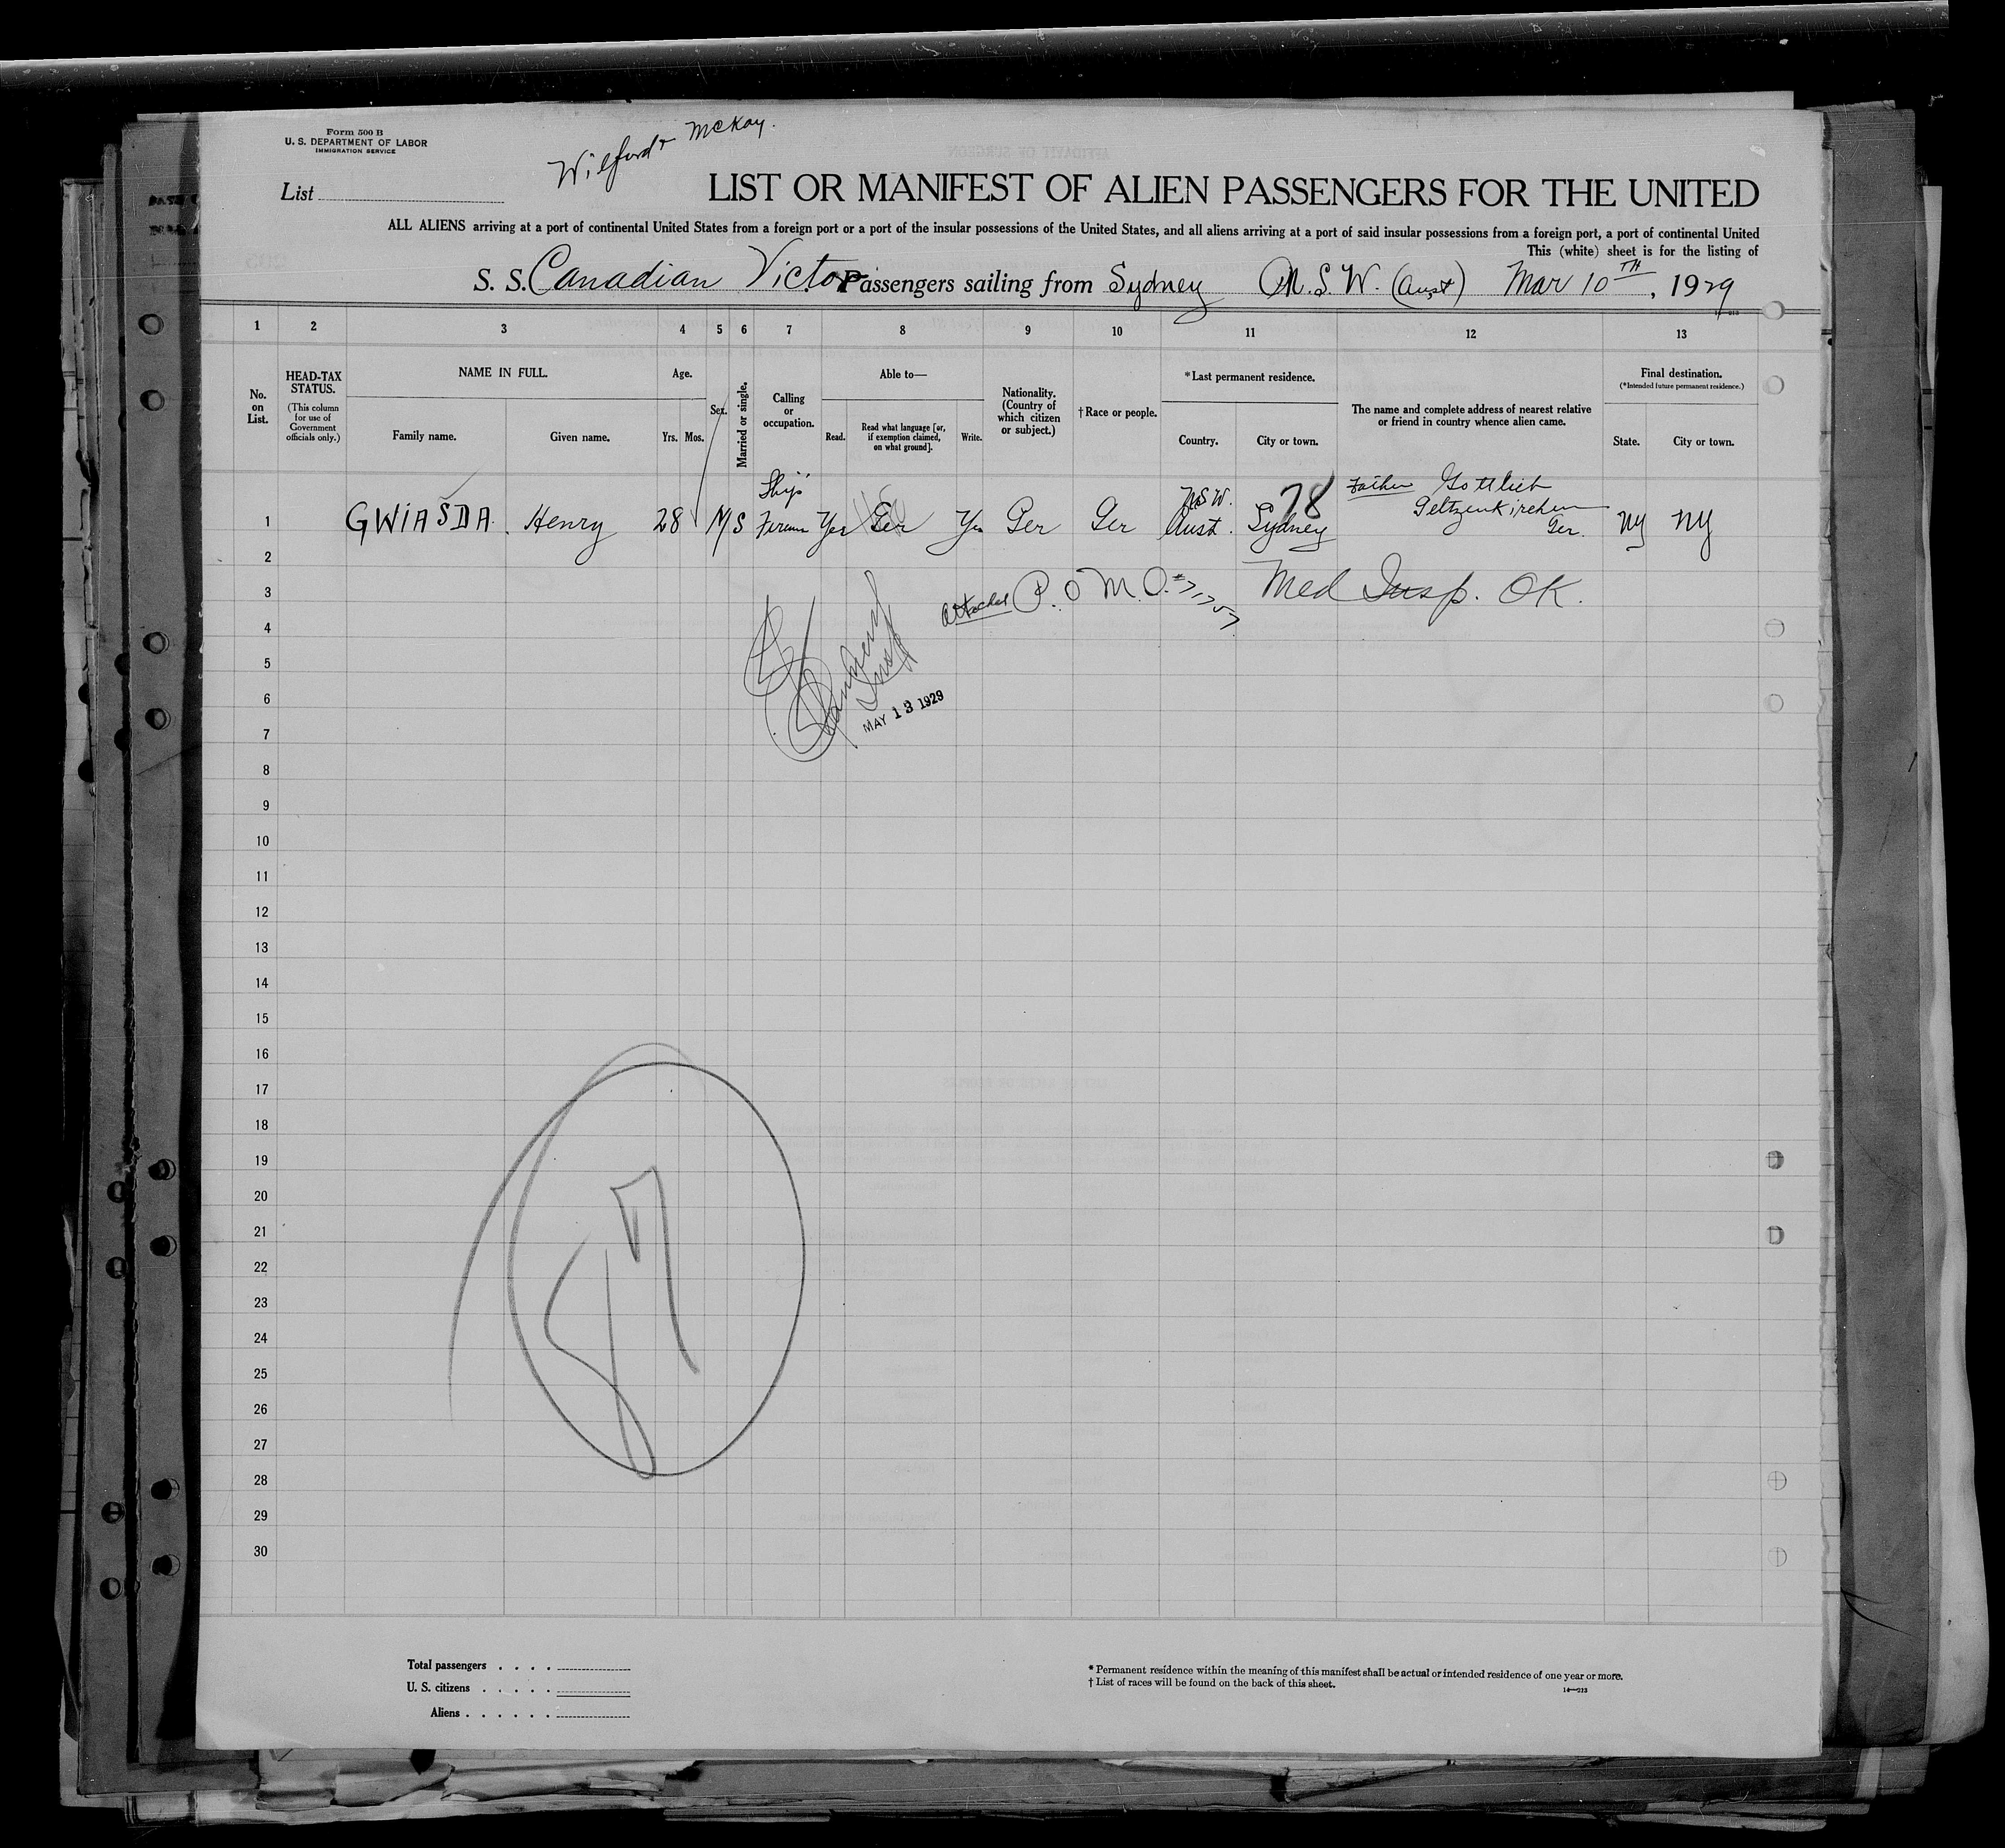 Form 500 B
U. S. DEPARTMENT OF LABOR
IMMIGRATION SERVICE
Wilford & McKay.
List
LIST OR MANIFEST OF ALIEN PASSENGERS FOR THE UNITED
ALL ALIENS arriving at a port of continental United States from a foreign port or a port of the insular possessions of the United States, and all aliens arriving at a port of said insular possessions from a foreign port, a port of continental United
This (white) sheet is for the listing of
S. S. Canadian Victor Passengers sailing from Sydney N.S.W. (Aust) Mar 10TH, 1929
1 2 3 4 5 6 7 8 9 10 11 12 13
No. on List.
HEAD-TAX STATUS.
(This column for use of Government officials only.)
NAME IN FULL.
Family name. Given name.
Age.
Yrs. Mos.
Sex.
Married or single.
Calling or occupation.
Able to—
Read. Read what language [or, if exemption claimed, on what ground]. Write.
Nationality. (Country of which citizen or subject.)
†Race or people.
*Last permanent residence.
Country. City or town.
The name and complete address of nearest relative or friend in country whence alien came.
Final destination.
(*Intended future permanent residence.)
State. City or town.
Ship's N.S.W. 78 Father Gottlieb
Geltzenkirchen
1 GWIASDA. Henry 28 M S Fireman Yes Ger Yes Ger Ger Aust. Sydney Ger. NY NY
2
3 Attached P.O M.O. #71757 Med Insp. OK.
4
5
Insp
6 MAY 13 1929
7
8
9
10
11
12
13
14
15
16
17
18
19
20
21
22
23
24
25
26
27
28
29
30
Total passengers . . . .
U. S. citizens . . . . .
Aliens . . . . . .
* Permanent residence within the meaning of this manifest shall be actual or intended residence of one year or more.
† List of races will be found on the back of this sheet.